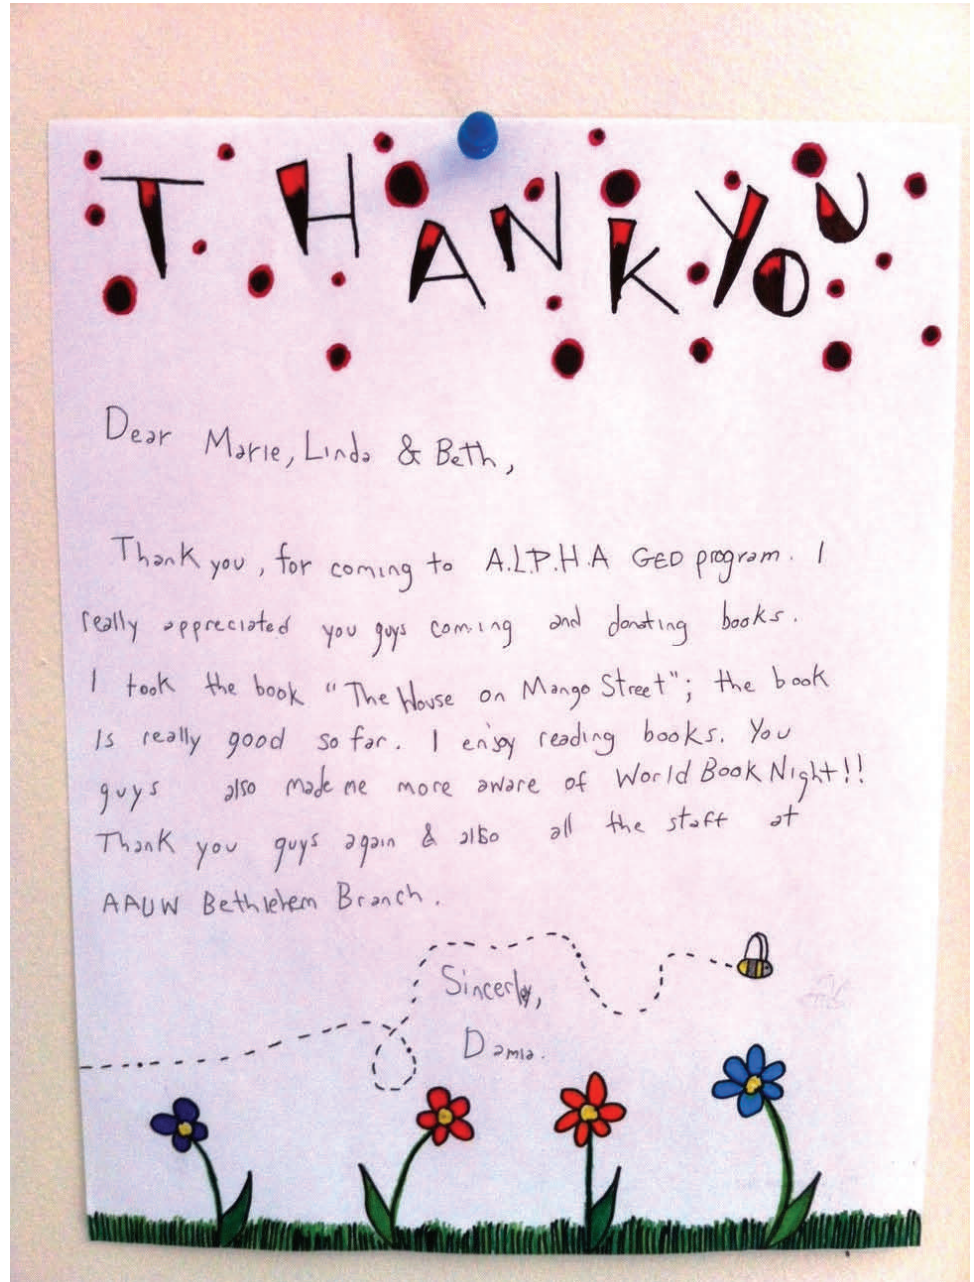 THANK YOU
Dear Marie, Linda & Beth,
Thank you, for coming to A.L.P.H.A GED program. I
really appreciated you guys coming and donating books.
I took the book "The House on Mango Street"; the book
is really good so far. I enjoy reading books. You
guys also made me more aware of World Book Night!!
Thank you guys again & also all the staff at
AAUW Bethlehem Branch.
Sincerly,
Damia.